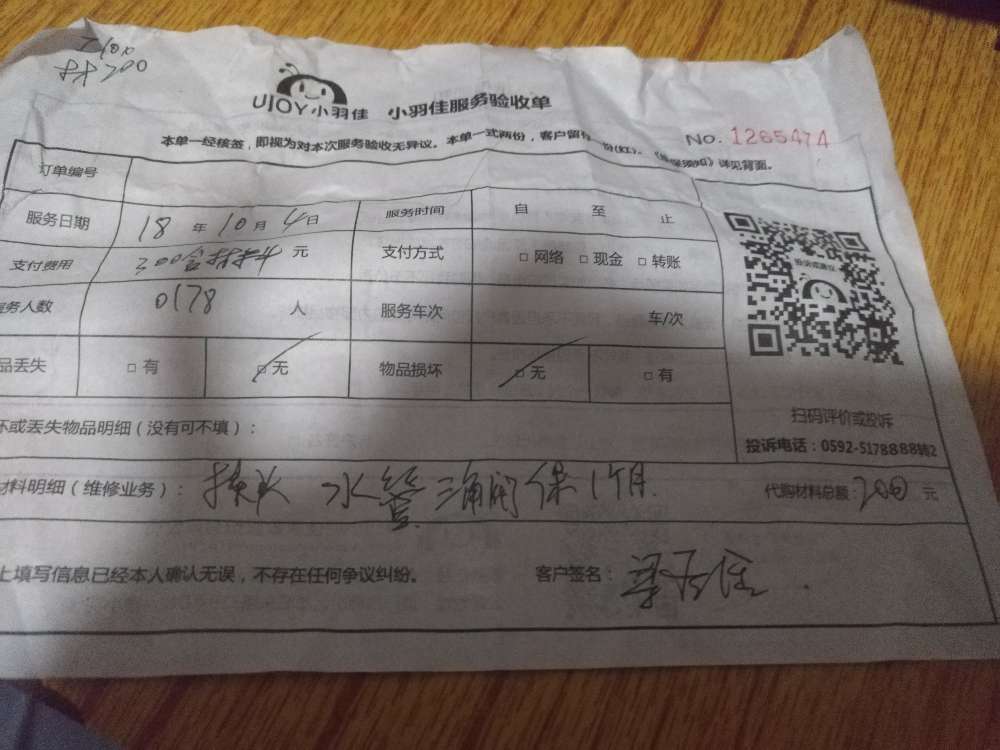 材200
UJOY小羽佳 小羽佳服务验收单
No. 1265474
本单一经核签，即视为对本次服务验收无异议。本单一式两份，客户留存 份(红)。 须知》详见背面。
订单编号
服务日期 18 年 10 月 4 日 服务时间 自 至 止
支付费用 300含材料 元 支付方式 □ 网络 □ 现金 □ 转账
务人数 0178 人 服务车次 车/次
品丢失 □ 有 □ 无 物品损坏 □ 无 □ 有
坏或丢失物品明细（没有可不填）：
扫码评价或投诉
投诉电话：0592-5178888转2
材料明细（维修业务）： 接头 水管 三角阀 保1个月 代购材料总额：200 元
上填写信息已经本人确认无误，不存在任何争议纠纷。 客户签名：